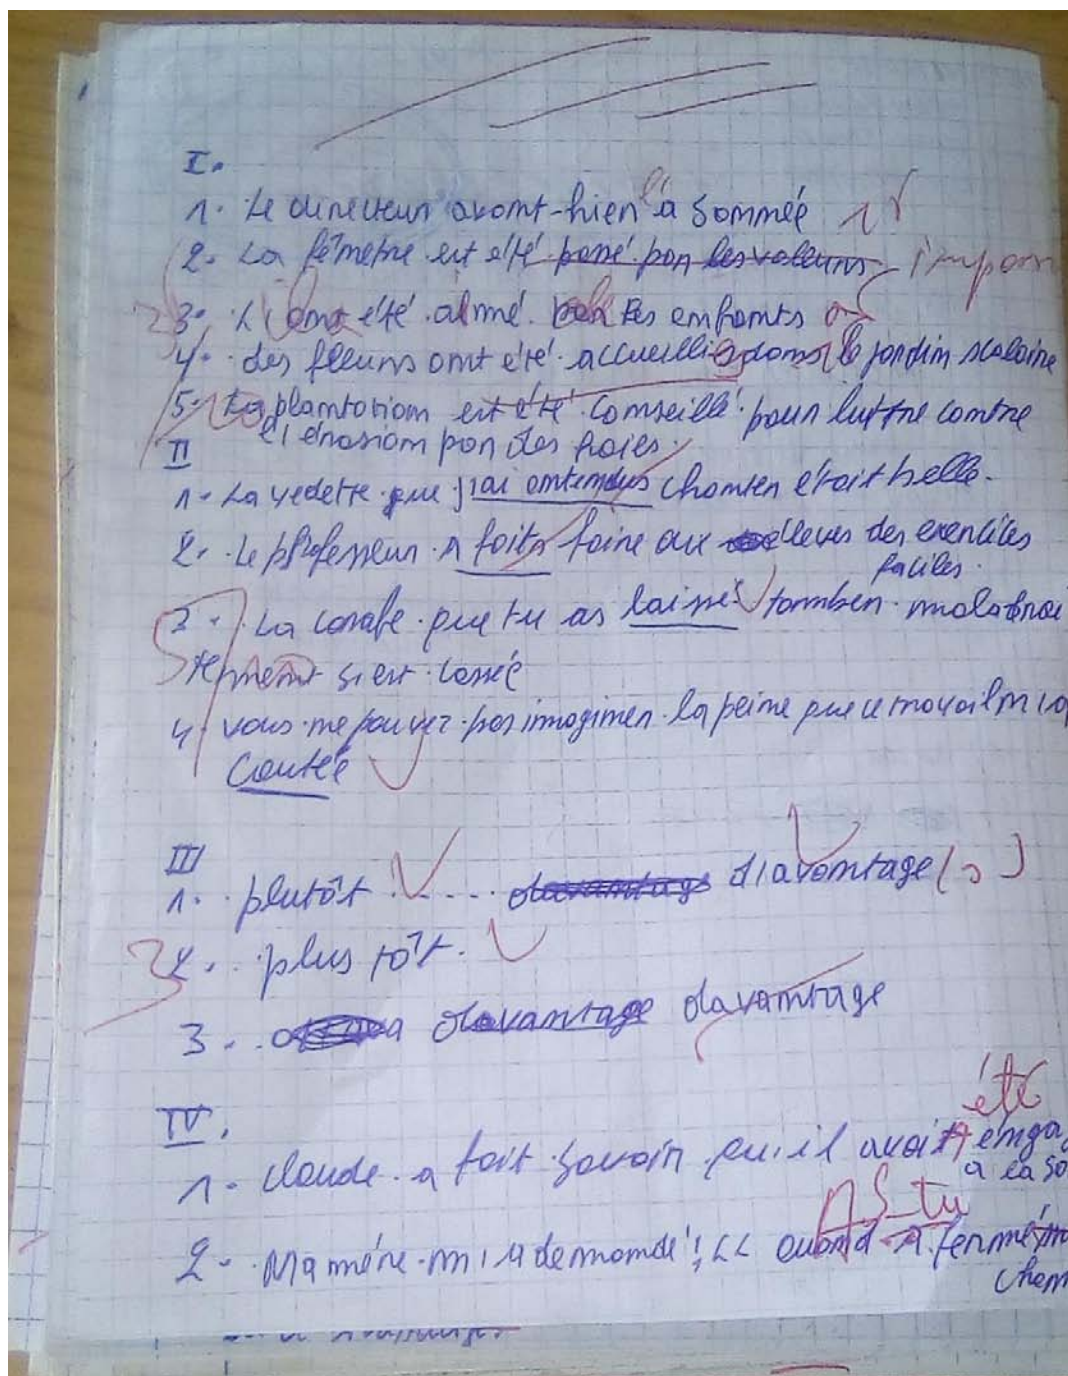 I.
1. Le directeur avant-hier l'a sommée 1
2. La fêmetre est été passé par les voleurs
3. été aimé Les enfants
4. des fleurs ont été accueillies dans le jardin scolaire
5. La plantation est été conseillé pour luttre contre
l'érosion par des haies.
II
1. La vedette que j'ai entendus chanter était belle.
2. Le professeur a faits faire aux élèves des exercices
faciles.
3. La carafe que tu as laissé tomber maladroi
tement s'est cassée
4. vous ne pouvez pas imaginer la peine que ce travail m'a
Coutée
III
1. plutôt ..... d'avantage (s)
2. plus tôt.
3. davantage davantage
IV.
été
1. Claude a fait savoir qu'il avait enga
a la so
AS-tu
2. Ma mère m'a demandé : << quand a fermé
cham